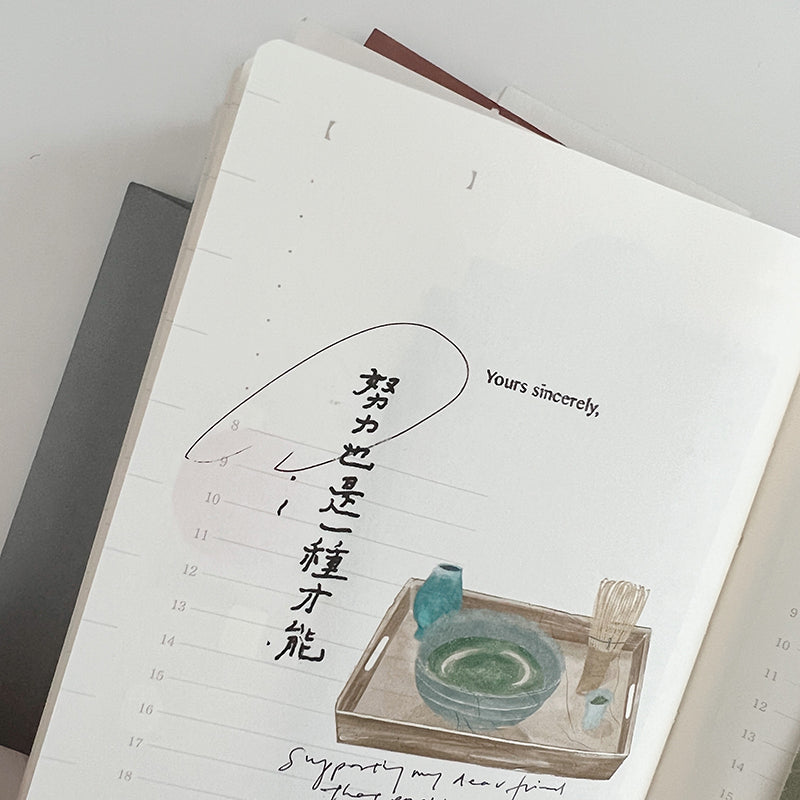 【
】
Yours sincerely,
努力也是一種才能
8
9
10
11
12
13
14
15
16
17
18
my dear friend
9
10
11
12
13
14
15